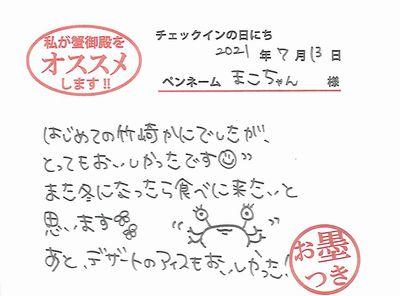 私が蟹御殿を
オススメ
します!!
チェックインの日にち
2021年7月13日
ペンネーム まこちゃん 様
はじめての竹崎かにでしたが、
とってもおいしかったです
また冬になったら食べに来たいと
思います
あと、デザートのアイスもおいしかった!
お墨
つき